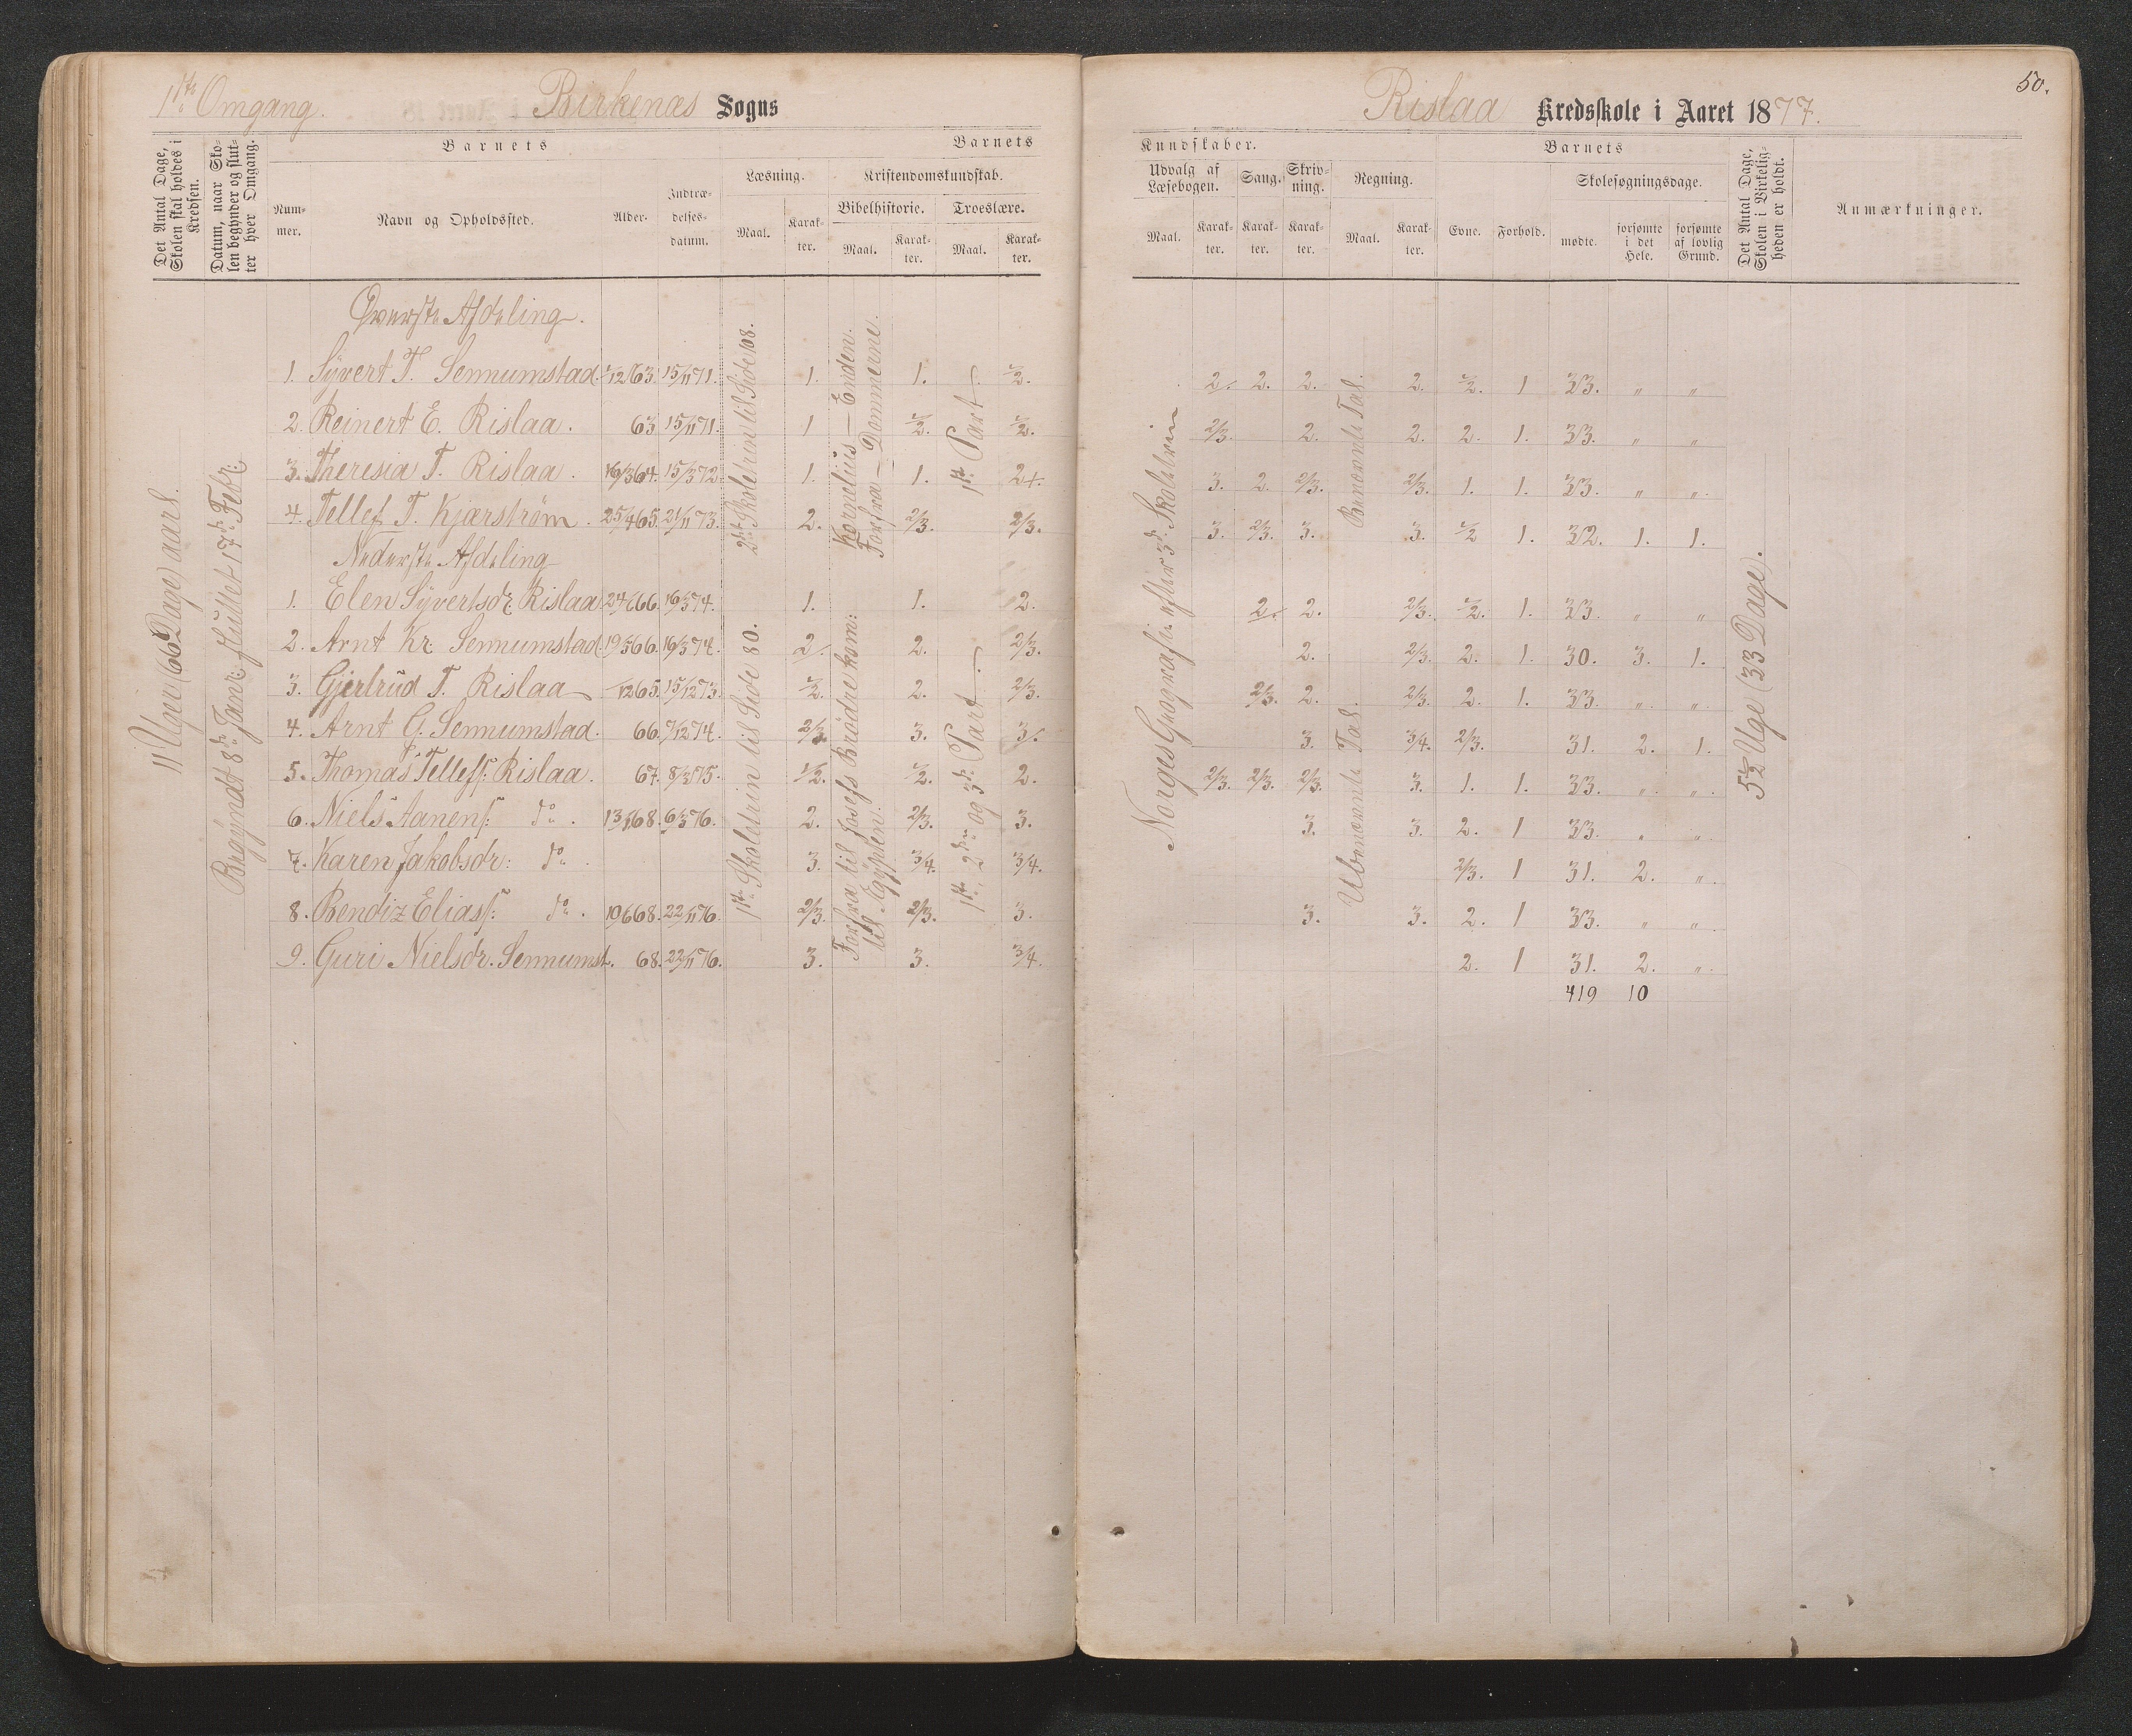 1ste Omgang.
Birkenæs Sogns
Det Antal Dage, Skolen skal holdes i Kredsen.
Datum, naar Skolen begynder og slutter hver Omgang.
Barnets
Nummer.
Navn og Opholdssted.
Alder.
Indtrædelsesdatum.
Barnets
Læsning.
Maal.
Karakter.
Kristendomskundskab.
Bibelhistorie.
Maal.
Karakter.
Troeslære.
Maal.
Karakter.
11 Uger (66 Dage) aarl.
Begyndt 8de Janr: sluttet 17de Febr:
2det Skoletrin til Side 108.
Kornelius — Enden.
Forfra — Dommerne.
1ste Part
Øverste Afdeling.
1. Syvert T. Sennumstad. /1263. 15/1171. 1. 1. ½.
2. Reinert E. Rislaa. 63 15/1171. 1 ½. ½.
3. Theresia T. Rislaa. 19/364. 15/372. 1. 1. 2+.
4. Tellef T. Kjærström. 25/465. 21/1173. 2. 2/3. 2/3.
Nederste Afdeling
1ste Skoletrin til Side 80.
Forfra til Josefs Brödre kom:
til Egypten:
1ste, 2den og 3die Part
1. Elen Syvertsdr. Rislaa 24/666. 16/374. 1. 1. 2.
2. Arnt Kr. Sennumstad. 19/566. 16/374. 2/. 2. 2/3.
3. Gjertrud T. Rislaa /1265. 15/1273. ½. 2. 2/3.
4. Arnt G. Sennumstad. 66. 7/1274. 2/3. 3. 3/.
5. Thomas Tellefs: Rislaa. 67. 8/375. ½. ½. 2.
6. Niels Aanens: do. 13/168. 6/376. 2. 2/3. 3.
7. Karen Jakobsdr: do. 3. 3/4. 3/4.
8. Bendiz Elias: do. 10/668. 22/1176. 2/3. 2/3. 3.
9. Guri Nielsdr. Sennumst. 68. 22/1176. 3. 3. 3/4.
50.
Rislaa Kredsskole i Aaret 1877.
Kundskaber.
Udvalg af Læsebogen.
Maal.
Karakter.
Sang.
Karakter.
Skrivning.
Karakter.
Regning.
Maal.
Karakter.
Barnets
Evne.
Forhold.
Skolesøgningsdage.
mødte.
forsømte i det Hele.
forsømte af lovlig Grund.
Det Antal Dage, Skolen i Virkeligheden er holdt.
Anmærkninger.
Norges Geografi efter 3die Skoletrin
Benævnte Tal.
Ubenævnte Tal.
5½ Uge (33 Dage).
2/. 2. 2. 2. ½. 1 33. " "
2/3. 2. 2. 2. 1. 33. " "
3. 2. 2/3. 2/3. 1. 1. 33. " "
3. 2/3. 3. 3. ½ 1. 32. 1. 1.
2/. 2. 2/3. ½. 1. 33. " "
2. 2/3. 2. 1. 30. 3. 1.
2/3. 2. 2/3. 2. 1. 33. " "
3. 3/4. 2/3. 31. 2. 1.
2/3. 2/3. 2/3. 3. 1. 1. 33. " "
3. 3. 2. 1 33. " "
2/3. 1 31. 2. "
3. 3. 2. 1 33. " "
2. 1 31. 2. "
419 10